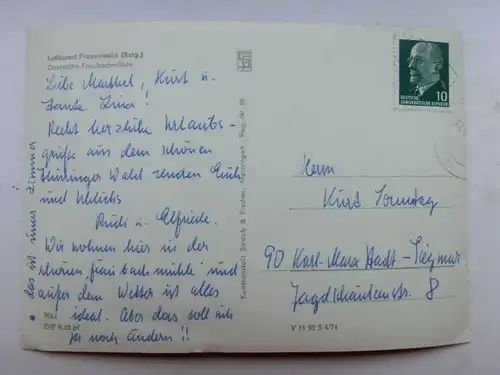 Luftkurort Frauenwald (Rstg.)
Gaststätte Fraubachmühle
Liebe Marthel, Kurt u.
Tante Lina!
Recht herzliche Urlaubs-
grüße aus dem schönen
Thüringer Wald senden Euch
und Ulrich
Rudi u. Elfriede.
Wir wohnen hier in der
schönen "Fraubachmühle" und
außer dem Wetter ist alles
ideal. Aber das soll sich
ja noch ändern!!
• das ist unser Zimmer
EVP 0,20 M
Kunstanstalt Straub & Fischer, Meiningen
V 11 50 S 4/74
DEUTSCHE
DEMOKRATISCHE REPUBLIK
10
Herrn
Kurt Sonntag
90 Karl-Marx-Stadt-Siegmar
Jagdschänkenstr. 8